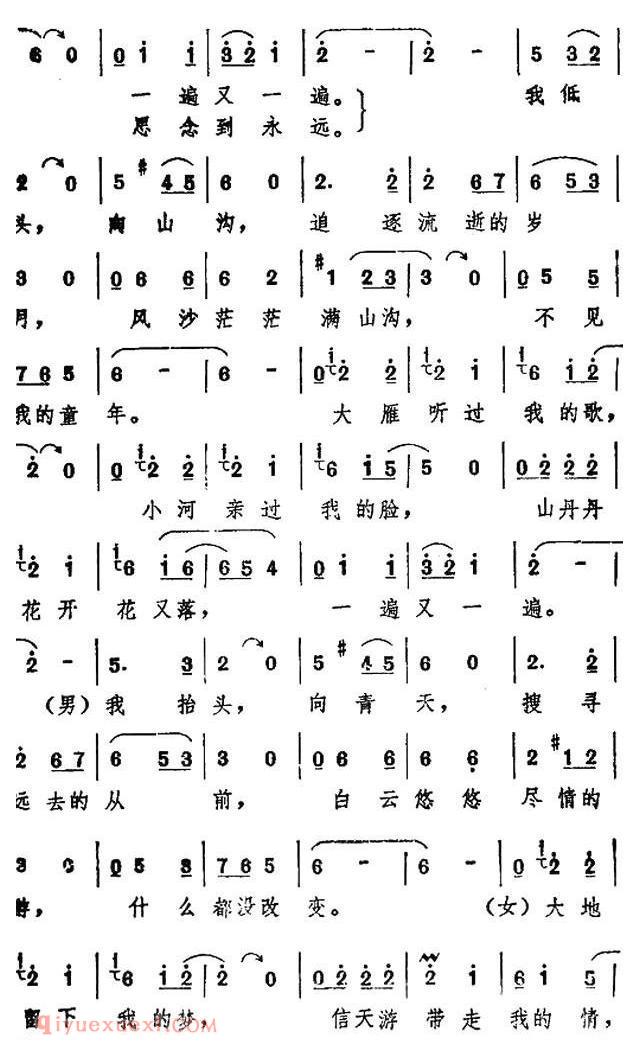 6 0 | 0 1 1 | 3 2 1 | 2 - | 2 - | 5 3 2 |
一遍又一遍。 我低
思念到永远。
2 0 | 5 #4 5 | 6 0 | 2. 2 | 2 6 7 | 6 5 3 |
头, 向山沟, 追逐流逝的岁
3 0 | 0 6 6 | 6 2 | #1 2 3 | 3 0 | 0 5 5 |
月, 风沙茫茫满山沟, 不见
7 6 5 | 6 - | 6 - | 0 2 2 | 2 1 | 6 1 2 |
我的童年。 大雁听过我的歌,
2 0 | 0 2 2 | 2 1 | 6 1 5 | 5 0 | 0 2 2 2 |
小河亲过我的脸, 山丹丹
2 1 | 6 1 6 | 6 5 4 | 0 1 1 | 3 2 1 | 2 - |
花开花又落, 一遍又一遍。
2 - | 5. 3 | 2 0 | 5 #4 5 | 6 0 | 2. 2 |
(男)我抬头, 向青天, 搜寻
2 6 7 | 6 5 3 | 3 0 | 0 6 6 | 6 6 | 2 #1 2 |
远去的从前, 白云悠悠尽情的
3 0 | 0 5 3 | 7 6 5 | 6 - | 6 - | 0 2 2 |
游, 什么都没改变。 (女)大地
2 1 | 6 1 2 | 2 0 | 0 2 2 2 | 2 1 | 6 1 5 |
留下我的梦, 信天游带走我的情,
qiyuexuexi.COM